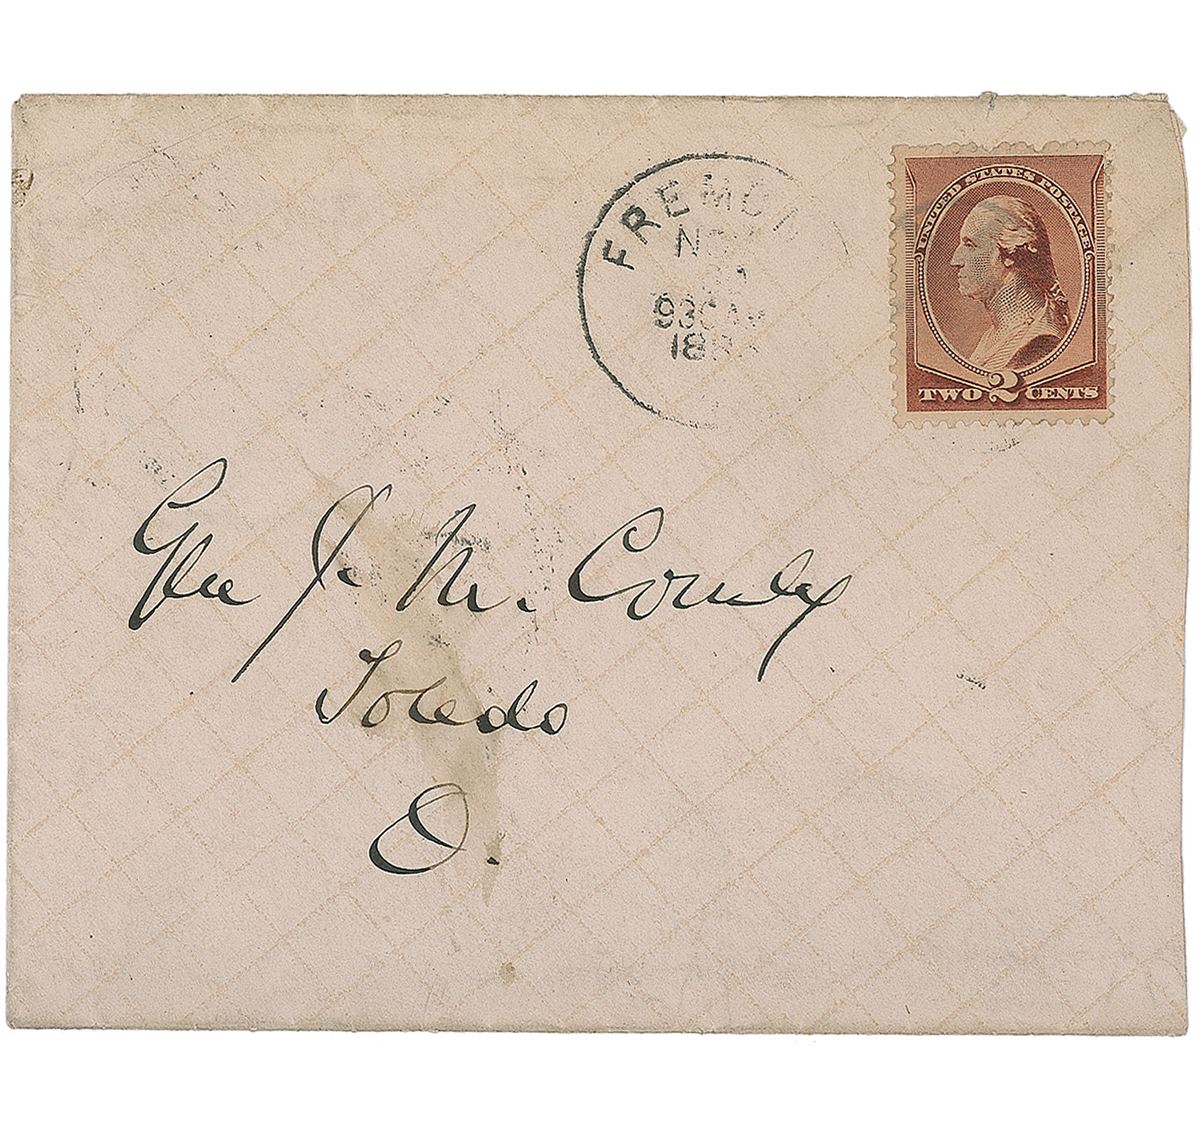 FREMONT
NOV
930 AM
UNITED STATES POSTAGE
TWO 2 CENTS
Gen J. M. Comly
Toledo
O.